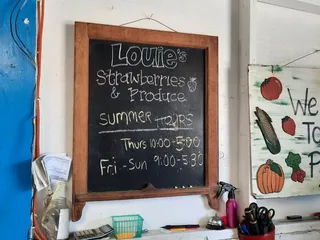 Louie's
Strawberries
& Produce
Summer Hours
Thurs 10:00-5:00
Fri.-Sun 9:00-5:30
We
To
P